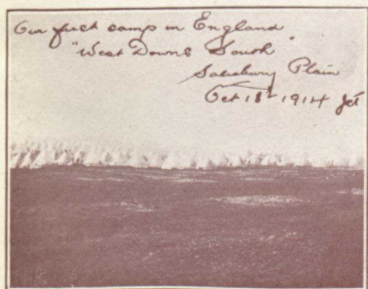 Our first camp in England
"West Downs South"
Salisbury Plain
Oct 18 - 1914